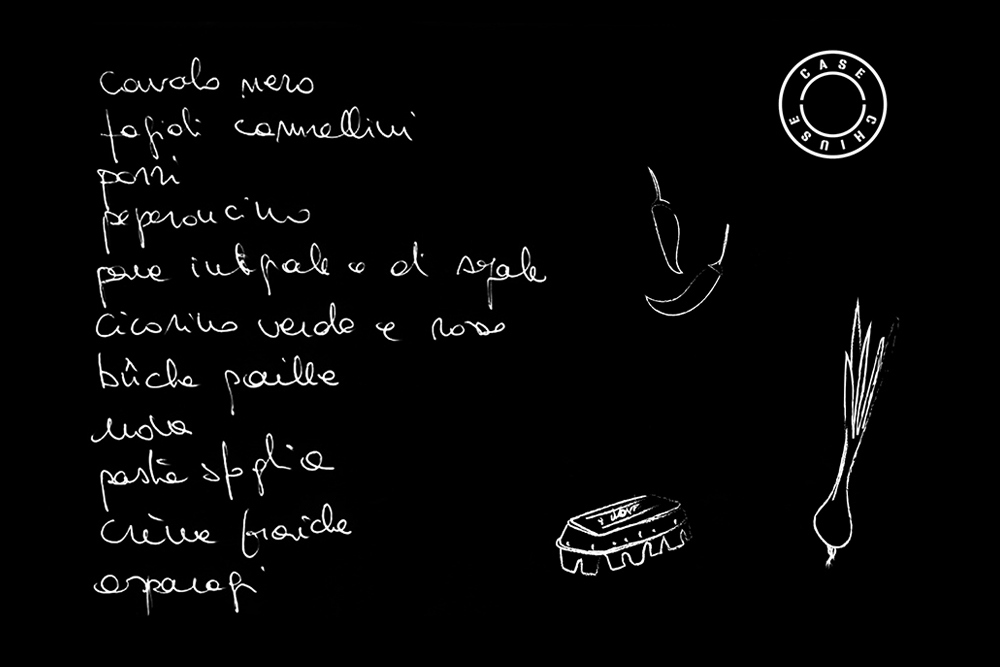 cavolo nero
fagioli cannellini
porri
peperoncino
pane integrale o di segale
cicorino verde e rosso
bûche paille
uova
pasta sfoglia
crème fraiche
asparagi
CASE CHIUSE